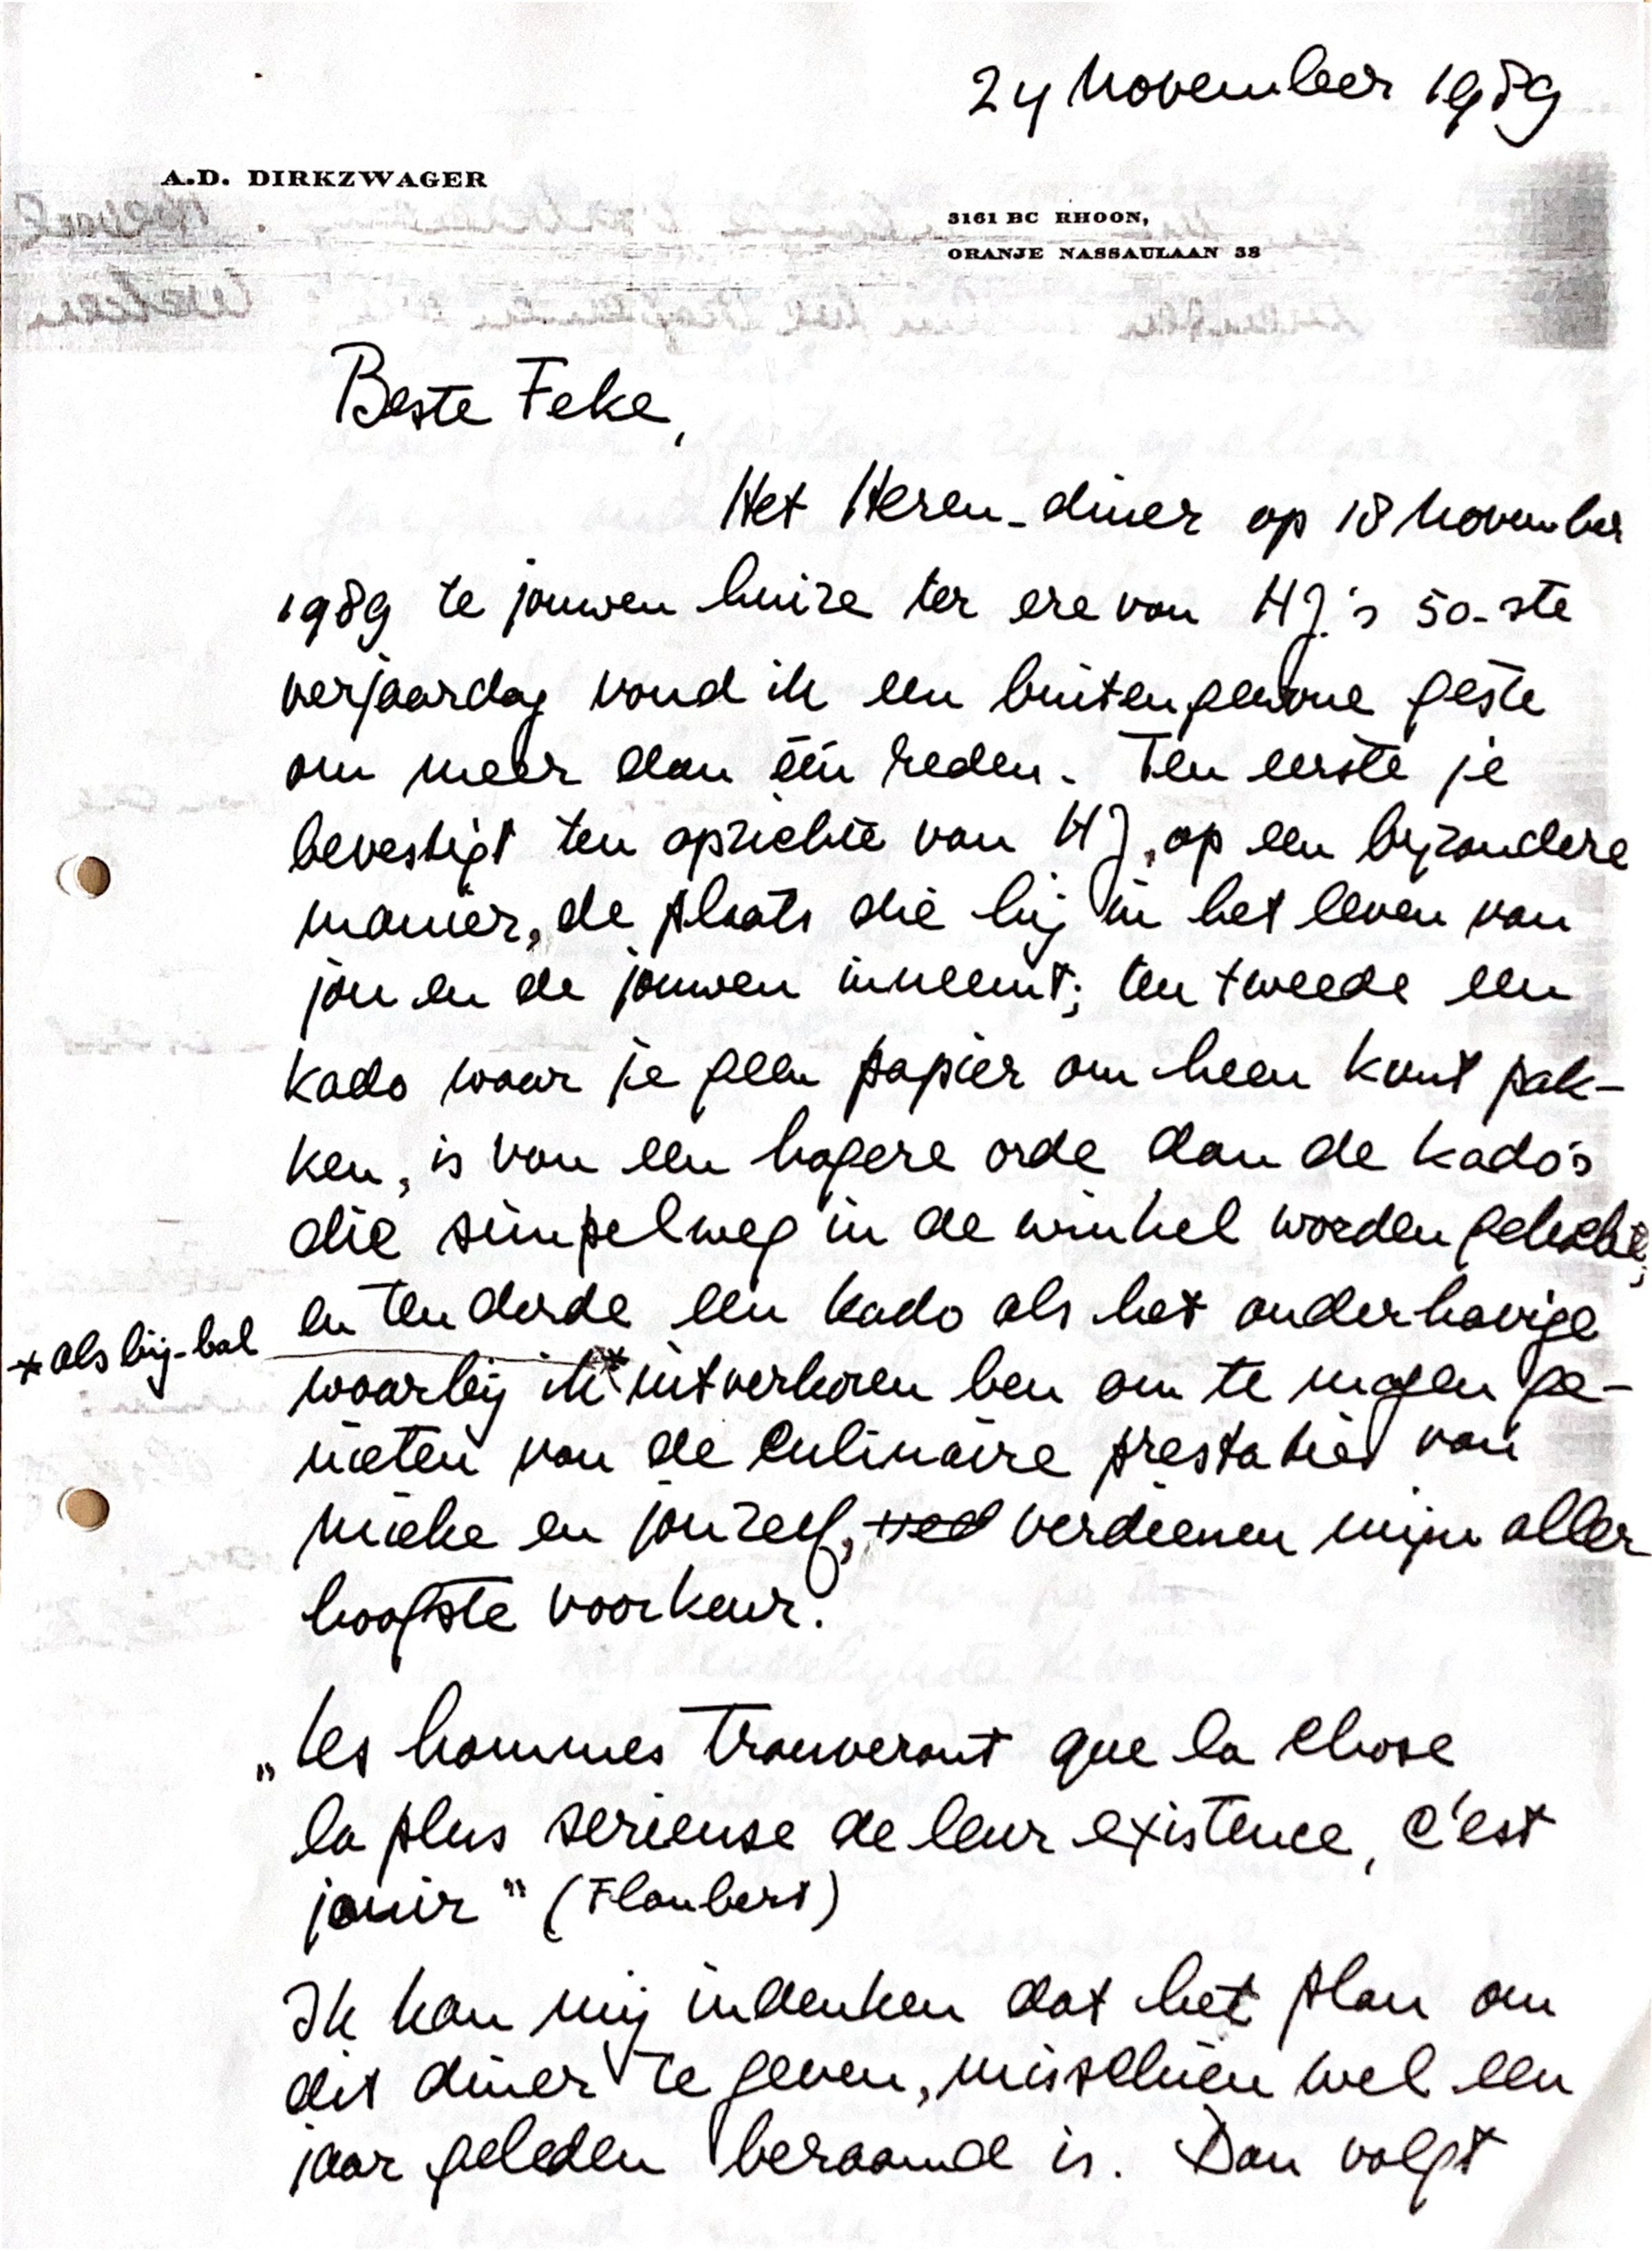 24 november 1989
A.D. DIRKZWAGER
3161 BC RHOON,
ORANJE NASSAULAAN 38
Beste Feke,
Het Heren-diner op 18 november
1989 te jouwen huize ter ere van HJ.'s 50-ste
verjaardag vond ik een buitengewone geste
om meer dan één reden. Ten eerste je
bevestigt ten opzichte van HJ, op een byzondere
manier, de plaats die hij in het leven van
jou en de jouwen inneemt; ten tweede een
kado waar je geen papier om heen kunt pak-
ken, is van een hogere orde dan de kado's
die simpelweg in de winkel worden gekocht;
en ten derde een kado als het onderhavige
* als bij-bal
waarbij ik * uitverkoren ben om te mogen ge-
nieten van de culinaire prestaties van
Mieke en jouzelf, verdienen mijn aller
hoogste voorkeur.
„Les hommes trouveront que la chose
la plus serieuse de leur existence, c'est
jouir" (Flaubert)
Ik kan mij indenken dat het plan om
dit diner te geven, misschien wel een
jaar geleden beraamd is. Dan volgt